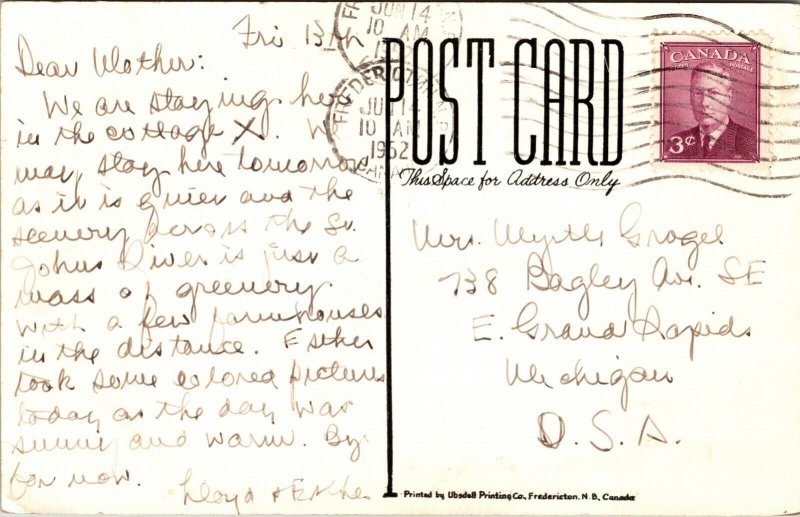 Fri 13th
Dear Mother:
We are staying here
in the cottage X. We
may stay here tomorrow
as it is quiet and the
scenery across the St.
Johns River is just a
mass of greenery
with a few farmhouses
in the distance. Esther
took some colored pictures
today as the day was
sunny and warm. By
for now.
Lloyd & Esther
JUN 14
10 AM
FREDERICTON
JUN 14
10 AM
1952
CANADA
POST CARD
This Space for Address Only
CANADA
POSTES POSTAGE
3¢
Mrs. Myrtle
738 Bagley Av. SE
E. Grand Rapids
Michigan
U.S.A.
Printed by Ubsdell Printing Co., Fredericton, N.B., Canada